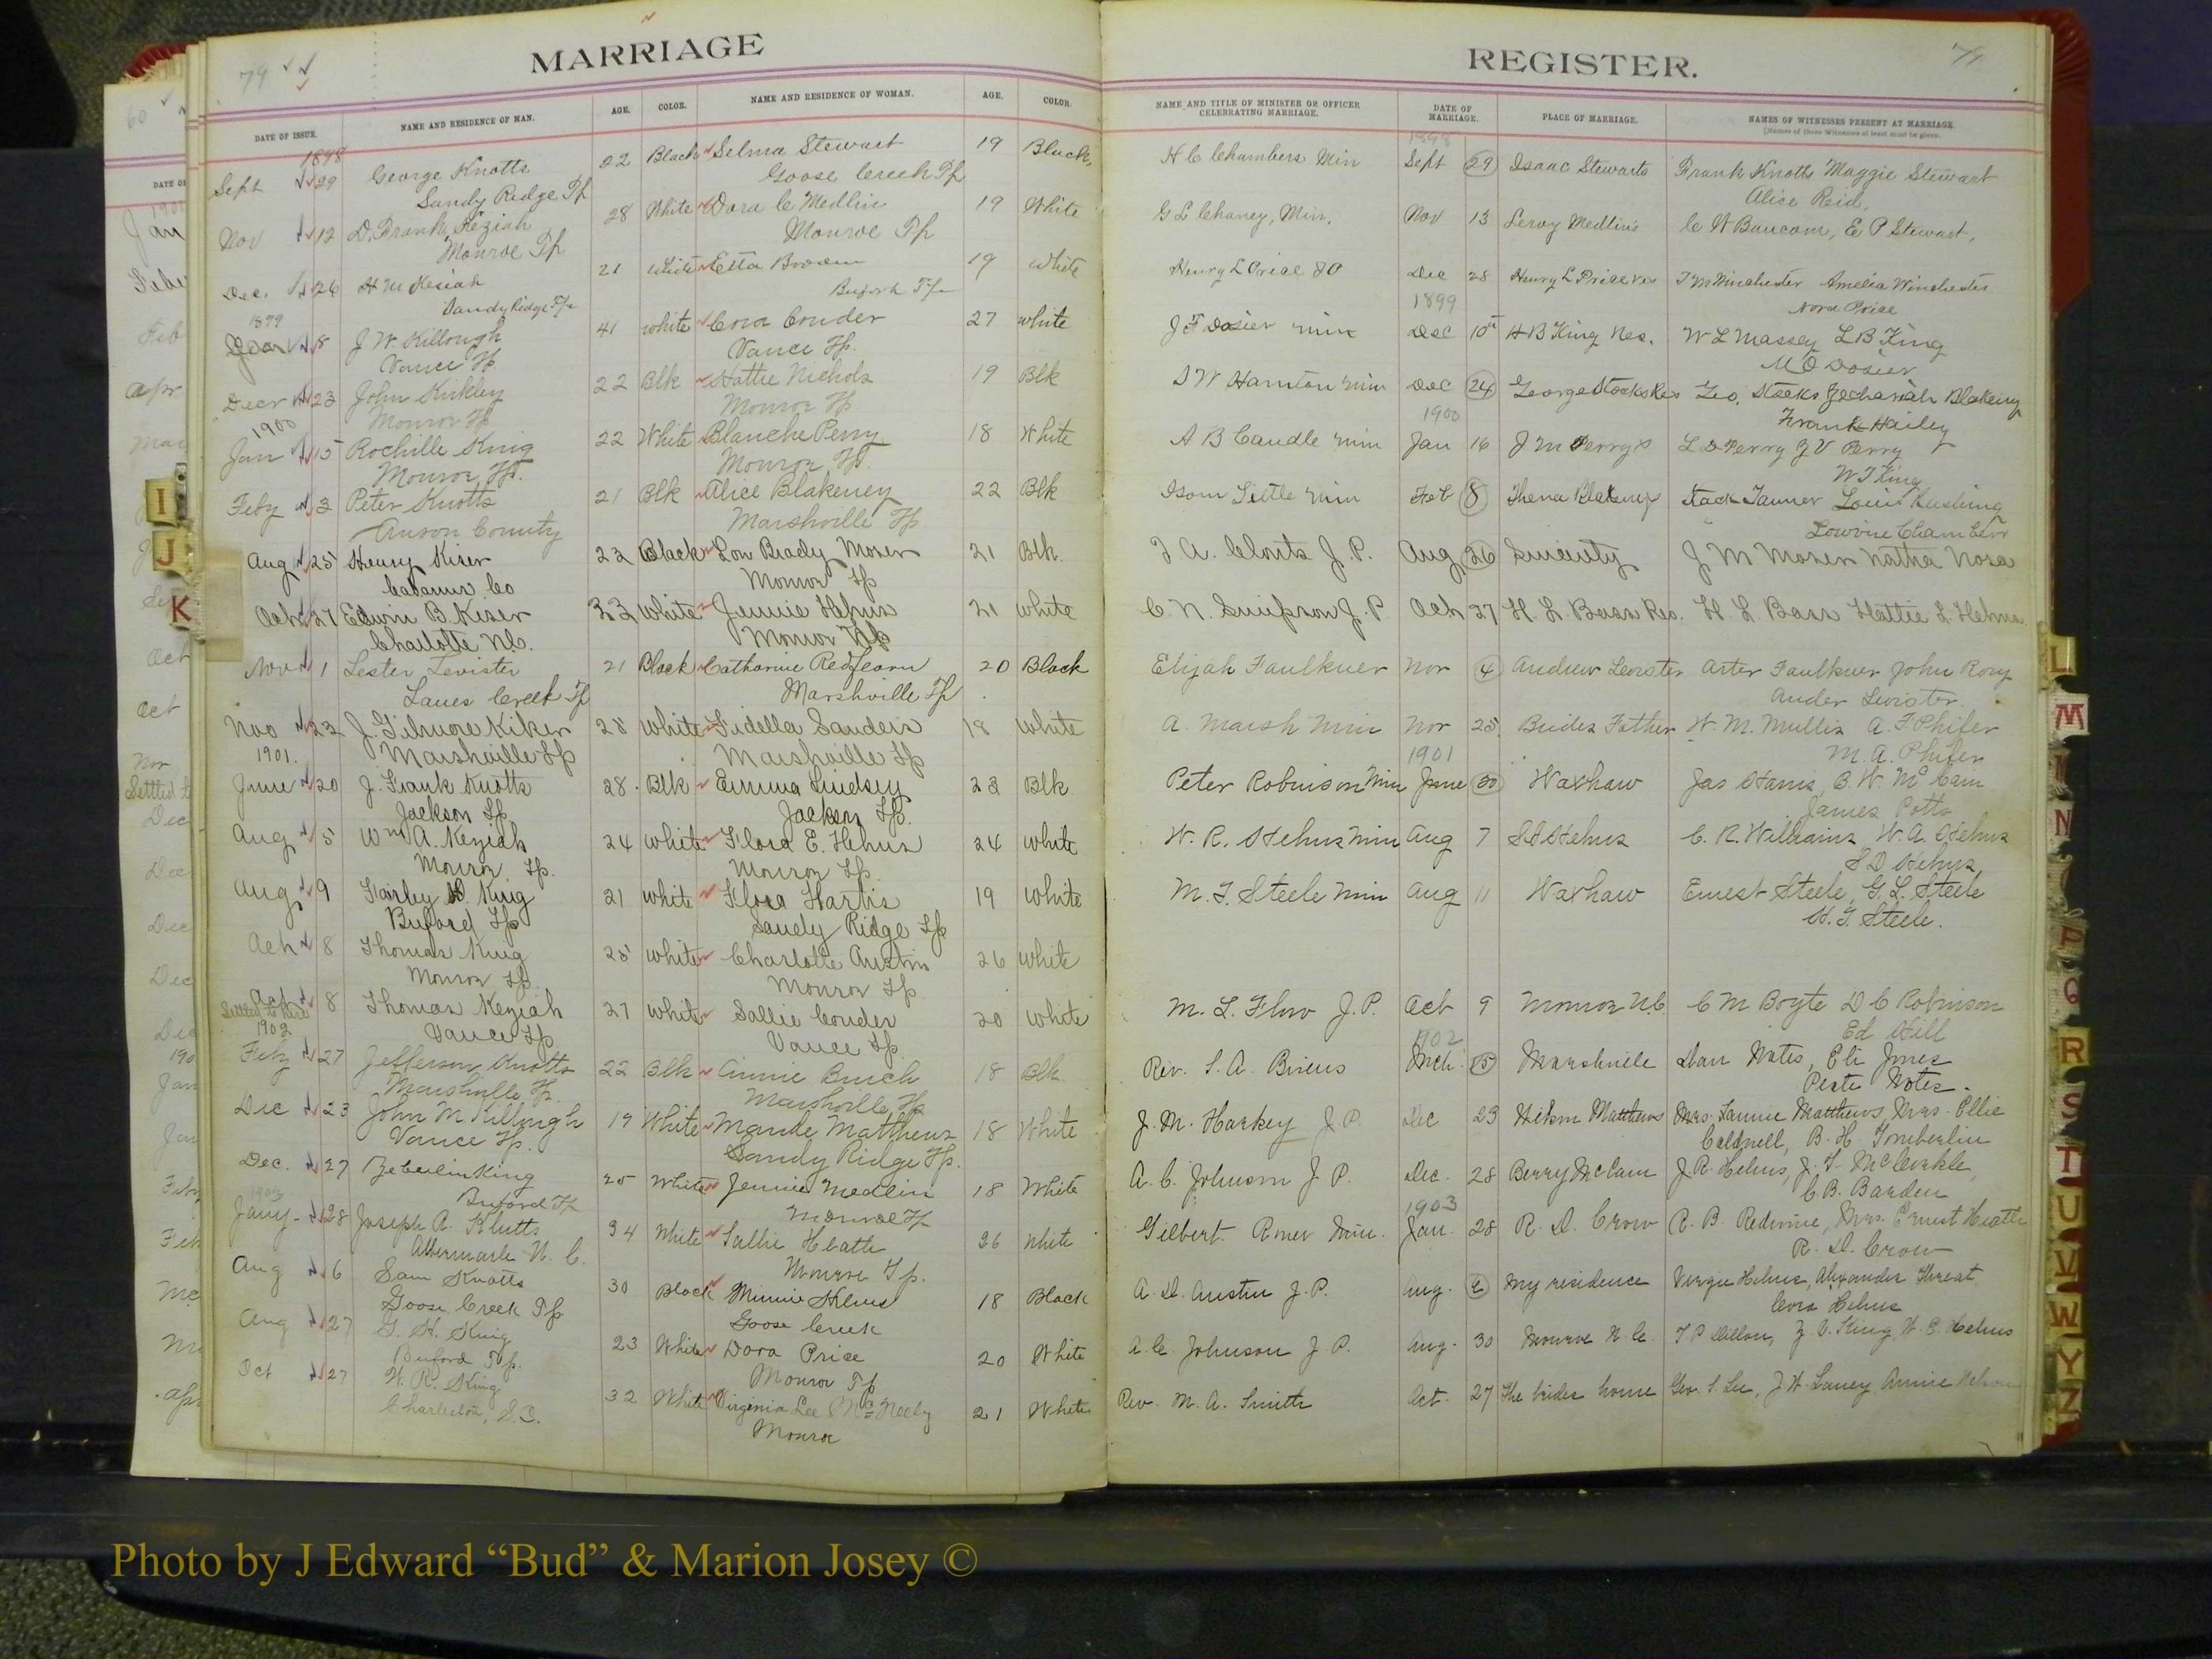 MARRIAGE
79
DATE OF ISSUE. NAME AND RESIDENCE OF MAN. AGE. COLOR. NAME AND RESIDENCE OF WOMAN. AGE. COLOR.
1898
Sept 29 George Knotts 22 Black Selma Stewart 19 Black
Sandy Ridge Tp Goose Creek Tp
Nov 12 D. Frank Keziah 28 White Dora C Medlin 19 White
Monroe Tp Monroe Tp
Dec. 26 H M Kesiah 21 White Etta Broom 19 White
Sandy Ridge Tp Buford Tp
1899
8 J W Killough 41 white Cora Conder 27 white
Vance Tp Vance Tp.
Decr 23 John Kirkley 22 Blk Hattie Nichols 19 Blk
Monroe Tp Monroe Tp
1900
Jan 15 Rochille King 22 White Blanche Perry 18 White
Monroe Tp. Monroe Tp.
Feby 3 Peter Knotts 21 Blk Alice Blakeney 22 Blk
Anson County Marshville Tp
Aug 25 Henry Kiser 23 Black Lou Brady Moser 21 Blk.
Cabarrus Co Monroe Tp
Oct 27 Edwin B. Kiser 33 white Jennie Helms 21 white
Charlotte N.C. Monroe Tp
Nov 1 Lester Levister 21 Black Catharine Redfearn 20 Black
Lanes Creek Tp Marshville Tp
Nov 23 J. Gilmore Kiker 28 White Fidella Sanders 18 White
1901. Marshville Tp Marshville Tp
June 20 J. Frank Knotts 28 Blk Emma Lindsey 23 Blk
Jackson Tp Jackson Tp.
Aug 5 Wm A. Keziah 24 white Flora E. Helms 24 white
Monroe Tp. Monroe Tp.
Aug 9 Fairley D. King 21 white Flora Hartis 19 White
Buford Tp Sandy Ridge Tp
Oct 8 Thomas King 25 white Charlotte Austin 26 White
Monroe Tp. Monroe Tp
Oct 8 Thomas Keziah 27 white Sallie Conder 20 White
1902 Vance Tp. Vance Tp
Feby 27 Jefferson Knotts 22 Blk Annie Burch 18 Blk
Marshville Tp. Marshville Tp
Dec 23 John M Killough 19 White Maude Matthews 18 White
Vance Tp. Sandy Ridge Tp.
Dec. 27 Zebulin King 25 White Jennie Medlin 18 White
1903 Buford Tp Monroe Tp
Jany 28 Joseph A. Klutts 34 White Sallie Heath 26 White
Albermarle N.C. Monroe Tp.
Aug 6 Sam Knotts 30 Black Minnie Helms 18 Black
Goose Creek Tp Goose Creek
Aug 27 G. H. King 23 White Dora Price 20 White
Buford Tp. Monroe Tp
Oct 27 W. R. King 32 White Virginia Lee McNeely 21 White
Charleston, S.C. Monroe
REGISTER.
79
NAME AND TITLE OF MINISTER OR OFFICER CELEBRATING MARRIAGE. DATE OF MARRIAGE. PLACE OF MARRIAGE. NAMES OF WITNESSES PRESENT AT MARRIAGE.
[Names of three Witnesses at least must be given.
1898
H C Chambers Min Sept 29 Isaac Stewarts Frank Knotts Maggie Stewart
Alice Reid,
G L Chaney, Min. Nov 13 Leroy Medlins C W Baucom, E P Stewart,
Henry L Price Dec 28 Henry L Price Res T M Winchester Amelia Winchester
1899 Nora Price
J F Dosier min Dec 10 H B King Res. W L Massey L B King
M O Dosier
Dec 24 George Stacks Res Geo. Stacks Zechariah Blakeney
1900 Frank Hailey
A B Caudle min Jan 16 J M Perrys L D Perry J V Perry
W T King
Isom Little min Feb 8 Thena Blakeney Stack Tanner Louis Rushing
T A. Clonts J. P. Aug 26 J M Moser
C. N. Simpson J. P Oct 27 H. L. Bass Res. H. L. Bass Hattie L Helms
Elijah Faulkner Nov 4 Andrew Levister Arter Faulkner John Rory
Ander Levister.
A. Marsh Min Nov 25 Brides Father W. M. Mullis A. F. Phifer
1901 M. A. Phifer
Peter Robinson Min June 30 Waxhaw Jas Stams, B. W. McCain
James Potts
W. R. Helms Min Aug 7 S D Helms C. R. Williams W. A. Helms
S D Helms
M. T. Steele Min Aug 11 Waxhaw Ernest Steele, G. L. Steele
H. T. Steele.
M. L. Flow J. P. Oct 9 Monroe N.C C M Boyte D C Robinson
1902 Ed Hill
Rev. S. A. Mch. 15 Marshville Dan Notes, Eli Jones
Peate Notes.
J. M. Harkey J. P. Dec 23 Helsm Matthews Mrs. Fannie Matthews, Mrs. Ollie
Caldwell, B. H. Timberlin
A. C. Johnson J P. Dec. 28 Berry McCain J. R. Helms, J. T. McCorkle,
1903 C. B. Barden
Gilbert Rowe Min. Jan 28 R. D. Crow R. B. Redwine, Mrs. Ernest Heath
R. D. Crow
A. D. Austin J. P. Aug. My residence Virgie Helms, Alexander Threat,
Cora Helms
A. C. Johnson J. P. Aug. 30 Monroe N. C. T P Dillon, Z. V. King, W. S. Helms
Rev. M. A. Smith Oct. 27 The brides home Geo. S. Lee, J. W. Laney Annie Nelson
I
J
K
L
M
N
P
Q
R
S
T
U
V
W
Y
Z
Photo by J Edward “Bud” & Marion Josey ©